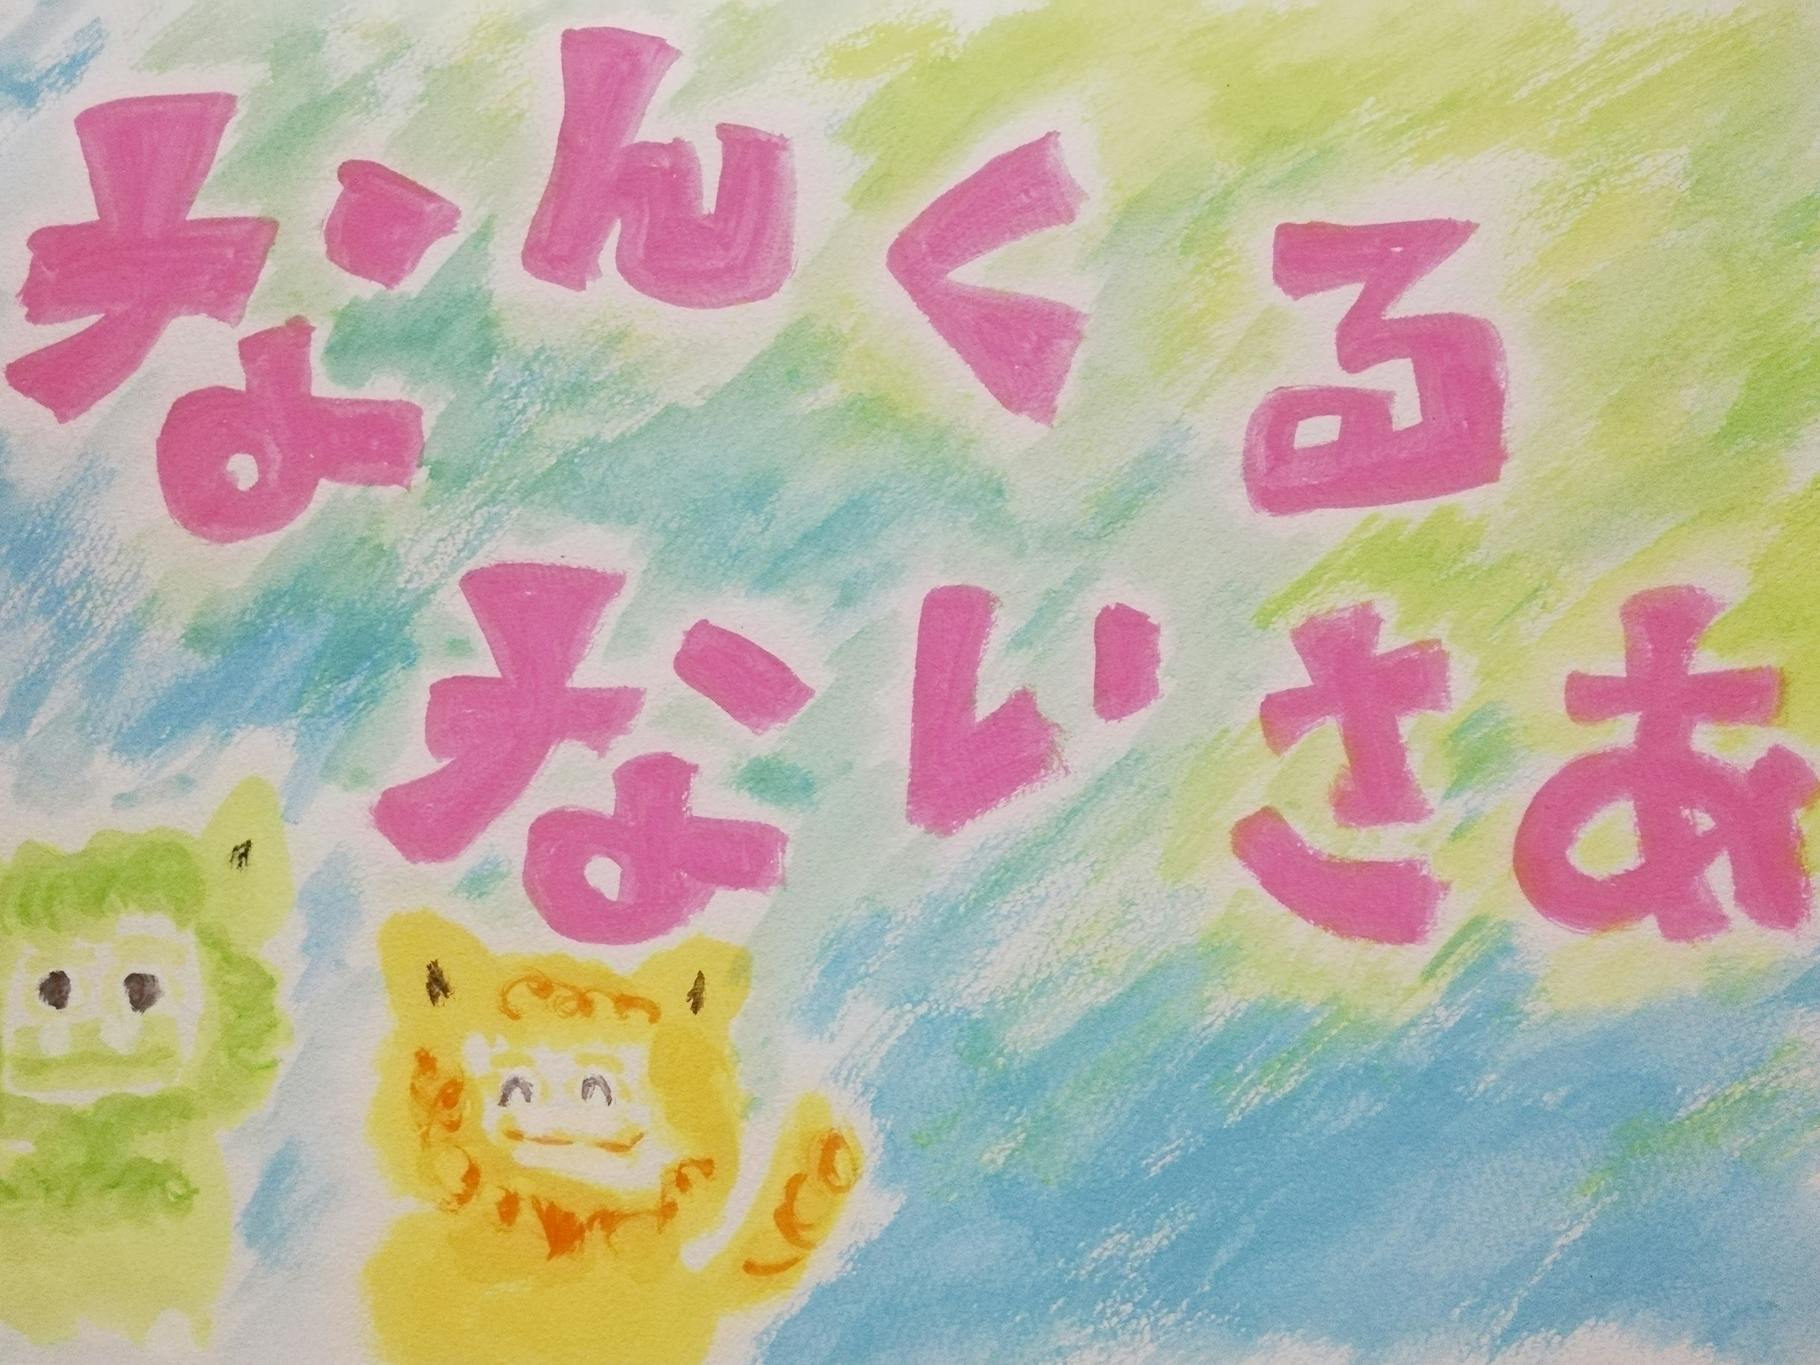 なんくる
ないさあ